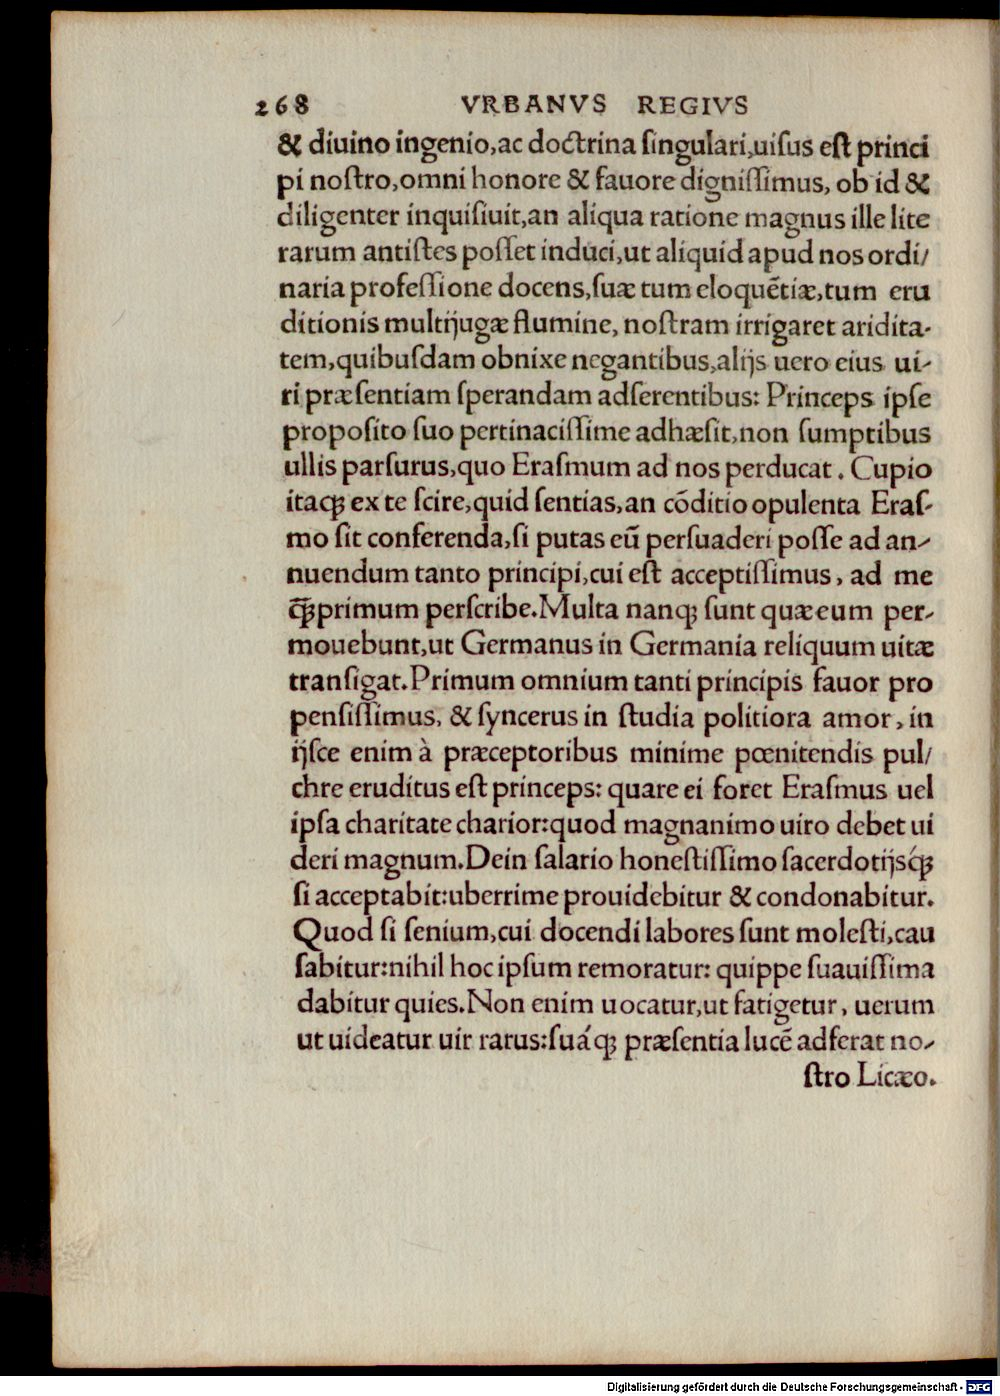 268 VRBANVS REGIVS
& diuino ingenio,ac doctrina ſingulari,uiſus eſt princi
pi noſtro,omni honore & fauore digniſſimus, ob id &
diligenter inquiſiuit,an aliqua ratione magnus ille lite
rarum antiſtes poſſet induci,ut aliquid apud nos ordi/
naria profeſſione docens,ſuæ tum eloquẽtiæ,tum eru
ditionis multijugæ flumine, noſtram irrigaret aridita-
tem,quibuſdam obnixe negantibus,alijs uero eius ui-
ri præſentiam ſperandam adſerentibus: Princeps ipſe
propoſito ſuo pertinaciſſime adhæſit,non ſumptibus
ullis parſurus,quo Eraſmum ad nos perducat. Cupio
itaꝗ ex te ſcire,quid ſentias,an cõditio opulenta Eraſ-
mo ſit conferenda,ſi putas eũ perſuaderi poſſe ad an-
nuendum tanto principi,cui eſt acceptiſſimus, ad me
ꝗ̃primum perſcribe.Multa nanꝗ ſunt quæ eum per-
mouebunt,ut Germanus in Germania reliquum uitæ
tranſigat.Primum omnium tanti principis fauor pro
penſiſſimus, & ſyncerus in ſtudia politiora amor, in
ijſce enim à præceptoribus minime pœnitendis pul/
chre eruditus eſt princeps: quare ei foret Eraſmus uel
ipſa charitate charior:quod magnanimo uiro debet ui
deri magnum.Dein ſalario honeſtiſſimo ſacerdotijsꝗ́
ſi acceptabit:uberrime prouidebitur & condonabitur.
Quod ſi ſenium,cui docendi labores ſunt moleſti,cau
ſabitur:nihil hoc ipſum remoratur: quippe ſuauiſſima
dabitur quies.Non enim uocatur,ut fatigetur, uerum
ut uideatur uir rarus:ſuáꝗ præſentia lucẽ adferat no-
ſtro Licæo.
Digitalisierung gefördert durch die Deutsche Forschungsgemeinschaft - DFG